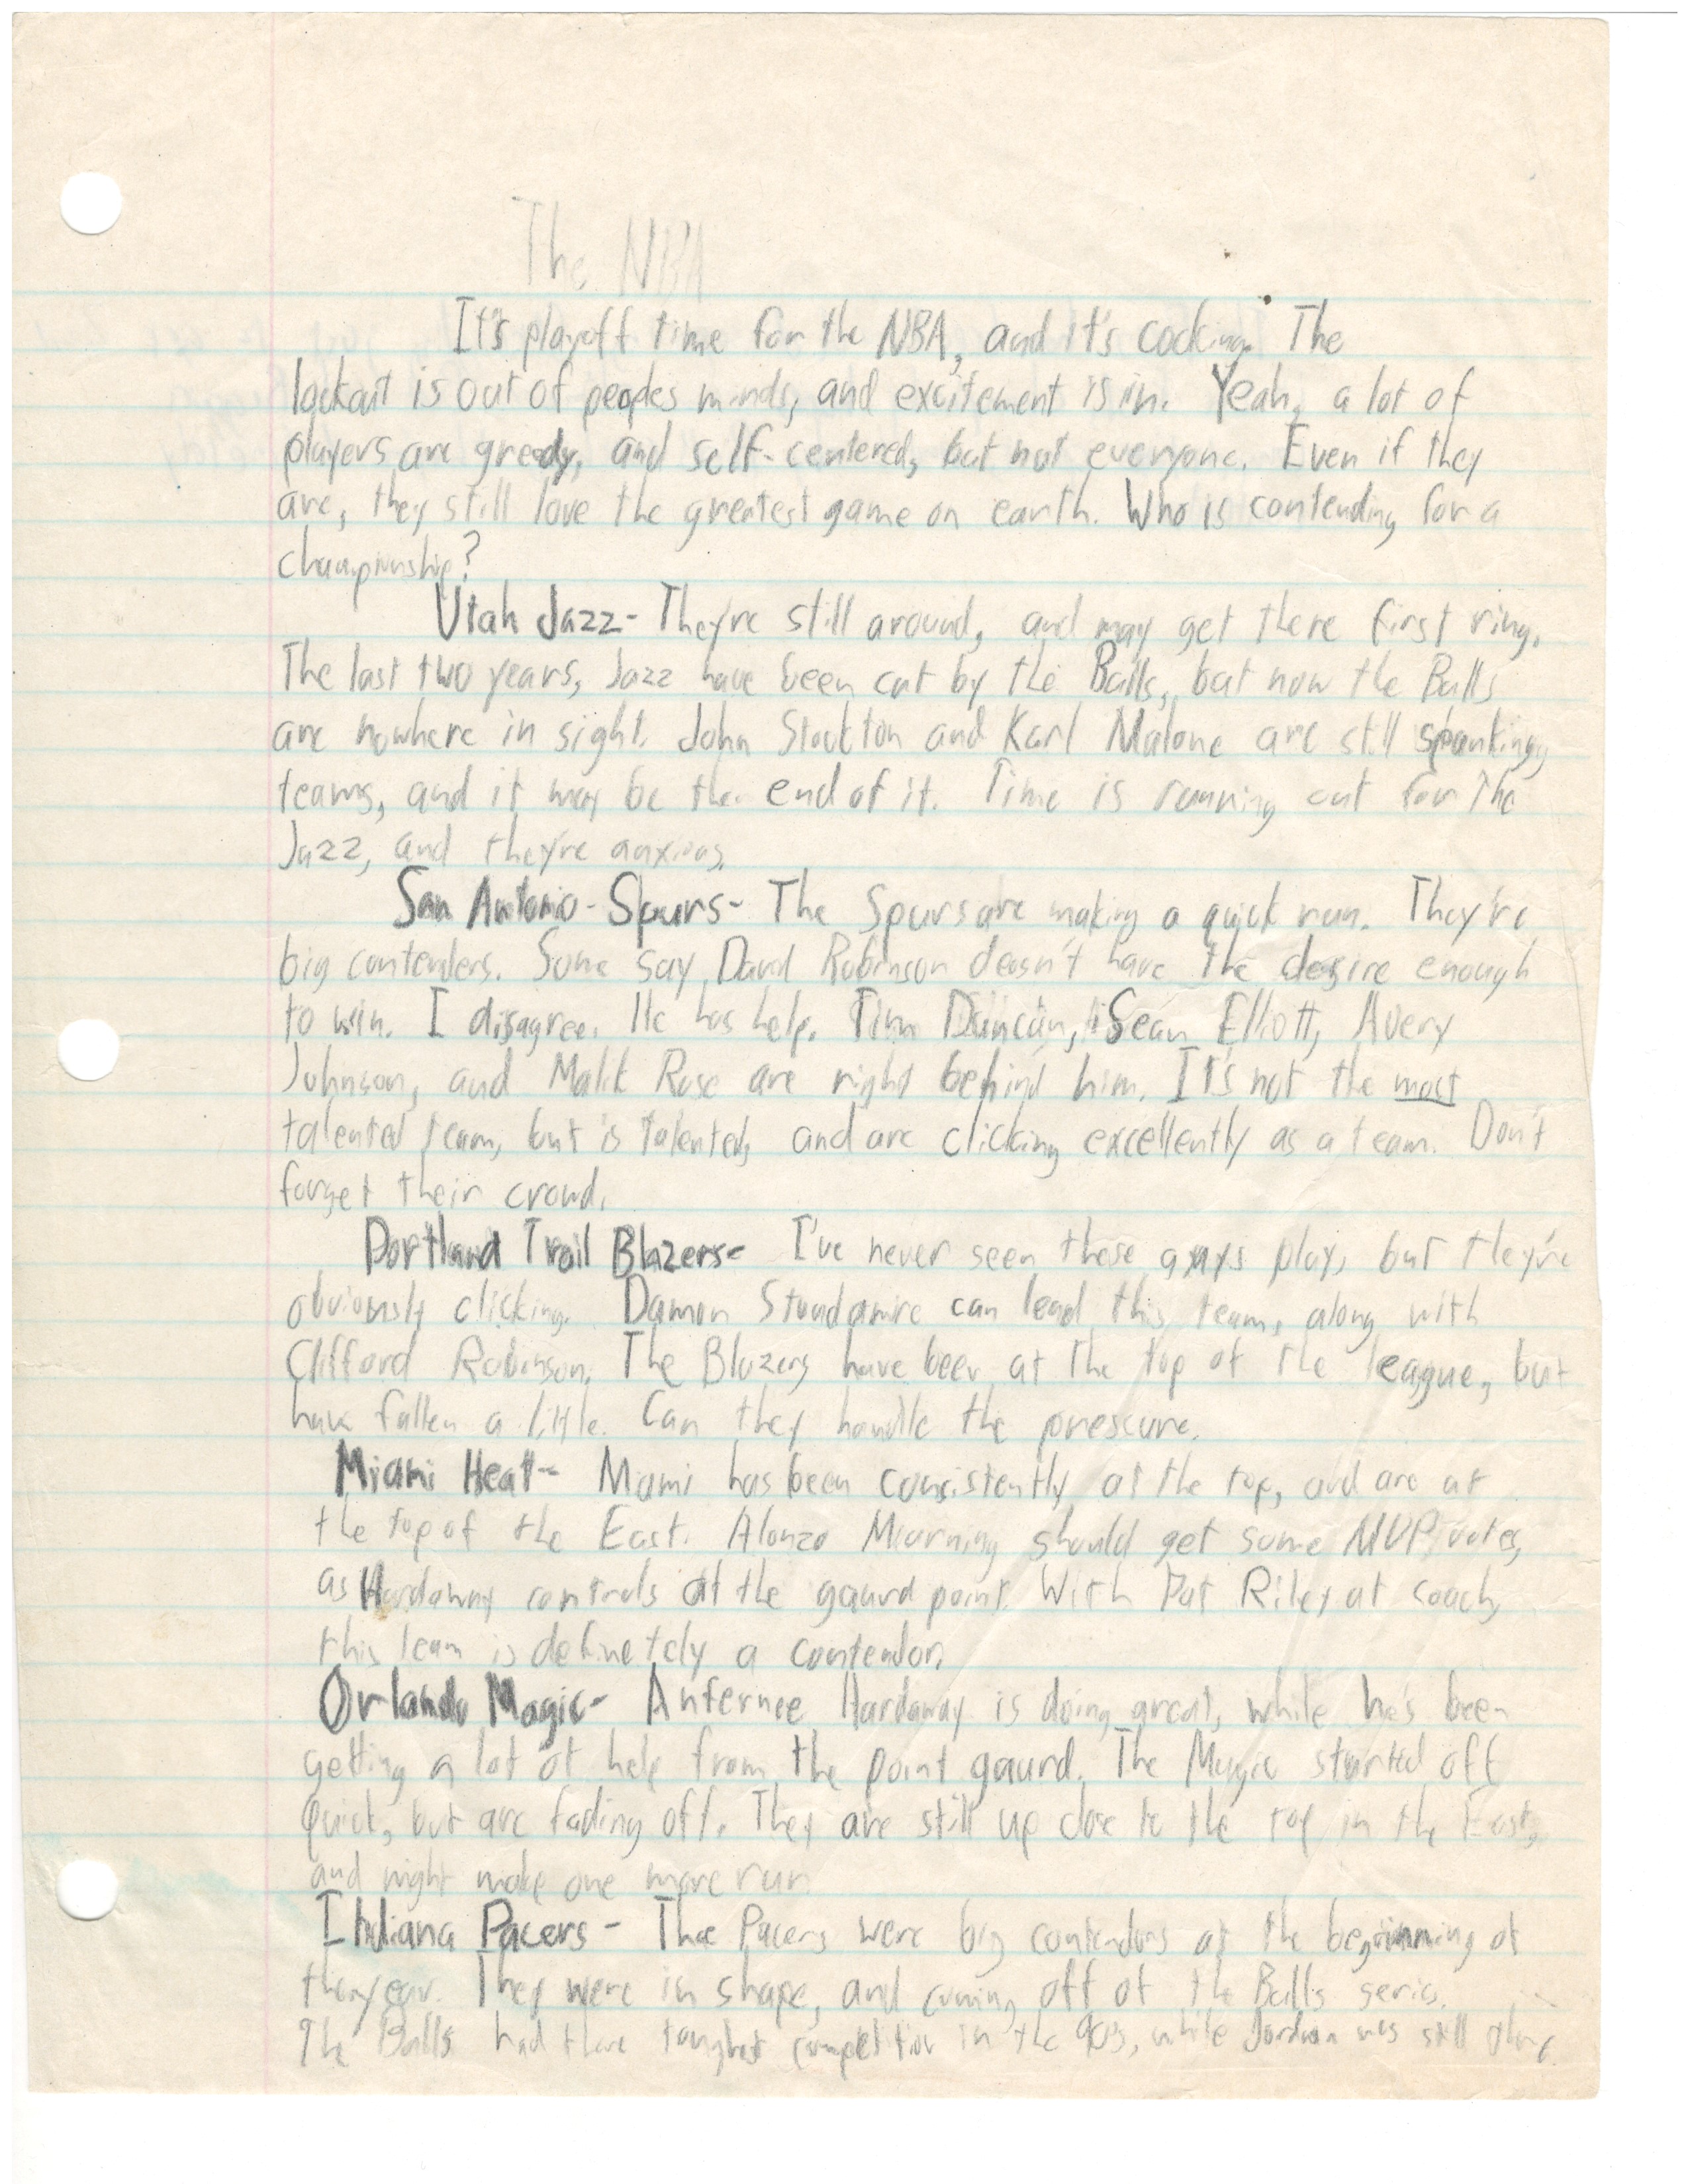 The NBA
It's playoff time for the NBA, and it's cocking. The
lockout is out of peoples minds, and excitement is in. Yeah, a lot of
players are greedy, and self-centered, but not everyone. Even if they
are, they still love the greatest game on earth. Who is contending for a
championship?
Utah Jazz- They're still around, and may get there first ring.
The last two years, Jazz have been cut by the Bulls, but now the Bulls
are nowhere in sight. John Stockton and Karl Malone are still spanking
teams, and it may be the end of it. Time is running out for the
Jazz, and they're anxious.
San Antonio-Spurs- The Spurs are making a quick run. They're
big contenders. Some say David Robinson doesn't have the desire enough
to win. I disagree. He has help. Tim Duncan, Sean Elliott, Avery
Johnson, and Malik Rose are right behind him. It's not the most
talented team, but is talented, and are clicking excellently as a team. Don't
forget their crowd.
Portland Trail Blazers- I've never seen these guys play, but they're
obviously clicking. Damon Stoudamire can lead this team, along with
Clifford Robinson. The Blazers have been at the top of the league, but
have fallen a little. Can they handle the prescure.
Miami Heat- Miami has been consistently at the top, and are at
the top of the East. Alonzo Mourning should get some MVP votes,
as Hardaway controls at the gaurd point. With Pat Riley at coach,
this team is definetely a contendor.
Orlando Magic- Anfernee Hardaway is doing great, while he's been
getting a lot of help from the point gaurd. The Magic started off
quick, but are fading off. They are still up close to the top in the East,
and might make one more run.
Indiana Pacers- The Pacers were big contendors at the beginning of
the year. They were in shape, and coming off of the Bulls series.
The Bulls had there toughest competition in the 90s, while Jordan was still